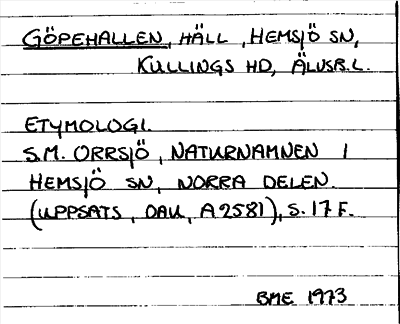 GÖPEHALLEN, HÄLL, HEMSJÖ SN,
KULLINGS HD, ÄLVSB.L.
ETYMOLOGI.
S.M. ORRSJÖ, NATURNAMNEN I
HEMSJÖ SN, NORRA DELEN.
(UPPSATS, DAU, A2581), S. 17 F.
BME 1973